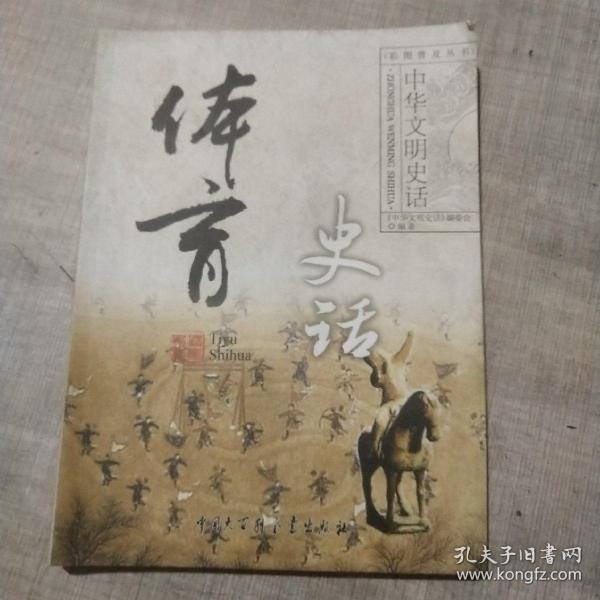 体育
史话
Tiyu
Shihua
《彩图普及丛书》
中华文明史话
·ZHONGHUA WENMING SHIHUA·
《中华文明史话》编委会
◎编著
中国大百科全书出版社
孔夫子旧书网
www.kongfz.com